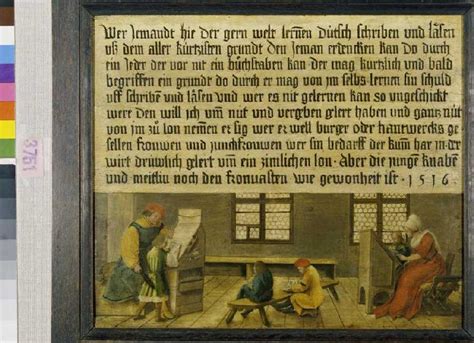 Wer Jemandt hie der gern welt lernen Dütsch schriben und läsen
uß dem aller kürtzisten grundt den Jeman erdencken kan Do durch
ein Jeder der vor nit ein büchstaben kan der mag kürtzlich und bald
begriffen ein grundt do durch er mag von jm selbs lernen sin schuld
uff schriben und läsen und wer es nit gelernen kan so ungeschickt
were den will ich um nüt und vergeben gelert haben und gantz nüt
von jm zů lon nemen er sig wer er well burger oder hantwercks ge
sellen frouwen und junckfrouwen wer sin bedarff der kum har jn der
wirt drüwlich glert um ein zimlichen lon · Aber die junge knaben
und meitlin noch den fronuasten wie gewonheit ist · 1516 ·
3761